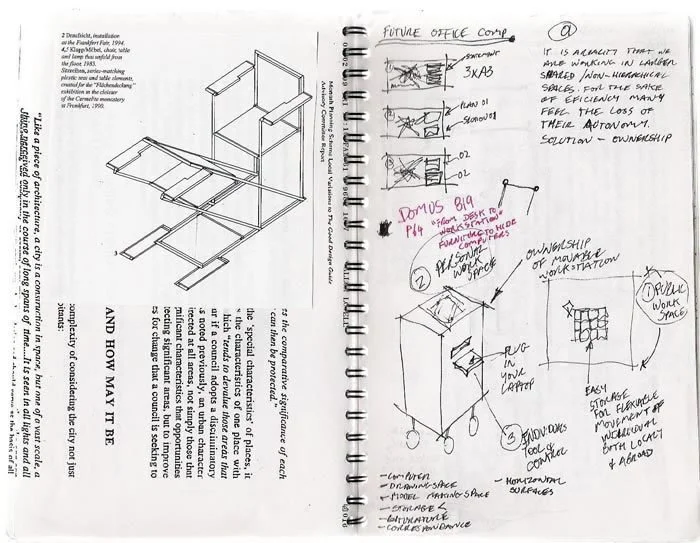 2 Draufsicht, installation
at the Frankfurt Fair, 1994.
4,5 Klapp/Möbel, chair, table
and lamp that unfold from
the floor, 1985.
plastic seat and table elements,
created for the "Flächendeckung"
exhibition in the cloister
of the Carmelite monastery
at Frankfurt, 1990.
3
"Like a piece of architecture, a city is a construction in space, but one of a vast scale, a
thing perceived only in the course of long spans of time....It is seen in all lights and all
Monash Planning Scheme Local Variations to The Good Design Guide
Advisory Committee Report
es the comparative significance of each
can then be protected."
the 'special characteristics' of places, it
s the characteristics of one place with
hich 'tends to devalue those areas that
ur if a council adopts a discriminatory
s noted previously, an urban character
irected at all areas, not simply those that
nificant characteristics that opportunities
tecting significant areas, but to improve
es for change that a council is seeking to
AND HOW MAY IT BE
complexity of considering the city not just
bitants:
FUTURE OFFICE COMP.
STATEMENT
3XA3
1
2
PLAN 01
SECTION 01
3
02
02
a
IT IS A REALITY THAT WE
ARE WORKING IN LARGER
SHARED / NON-HIERARCHICAL
SPACES. FOR THE SAKE
OF EFFICIENCY MANY
FEEL THE LOSS OF
THEIR AUTONOMY.
SOLUTION - OWNERSHIP
DOMUS 819
P64 "FROM DESK TO
WORKSTATION"
FURNITURE TO HIDE
COMPUTERS
2 PERSONAL
WORK
SPACE
OWNERSHIP
OF MOVABLE
WORKSTATION
1 PUBLIC
WORK
SPACE
PLUG
IN
YOUR
LAPTOP
EASY
STORAGE
FOR FLEXIBLE
MOVEMENT OF
INDIVIDUAL
BOTH LOCALLY
& ABROAD
3 INDIVIDUALS
TOOL OF
CONTROL
- COMPUTER
- DRAWING SPACE
- MODEL MAKING SPACE
- STORAGE
- LITERATURE
- CORRESPONDANCE
- HORIZONTAL
SURFACES